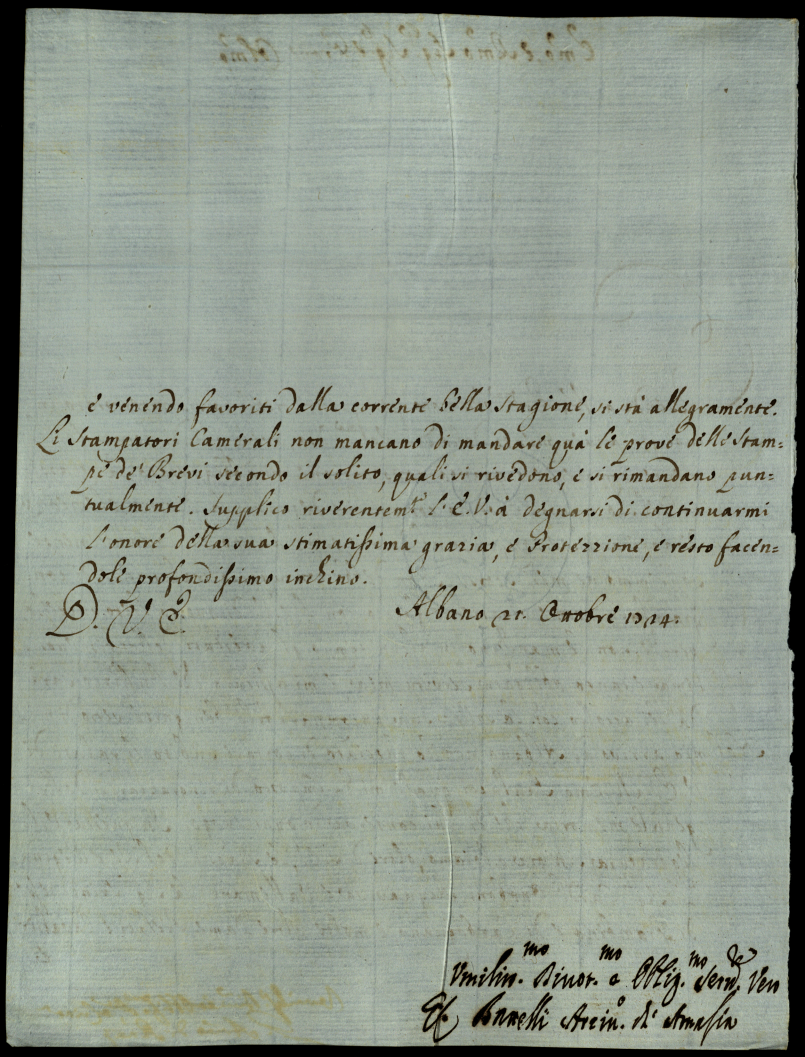 e venendo favoriti dalla corrente bella stagione, si stà allegramente.
Li Stampatori Camerali non mancano di mandare quà le prove delle stam=
pe de' Brevi secondo il solito, quali si rivedono, e si rimandano pun=
tualmente. Supplico riverentem.te l'E.V. à degnarsi di continuarmi
l'onore della sua stimatissima grazia, e Protezzione, e resto facen=
dole profondissimo inchino.
D. V. E. Albano 21. Ottobre 1724.
Umiliss.mo Divot.mo e Obblig.mo Serv.re Vero
Arciv.o di Amasia